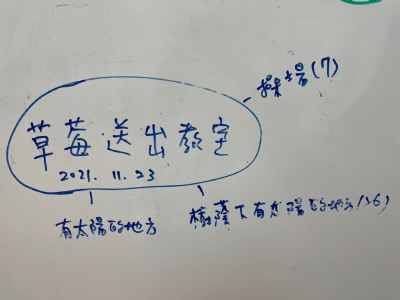 操場(7)
草莓送出教室
2021. 11. 23
有太陽的地方
樹蔭下有太陽的地方(16)